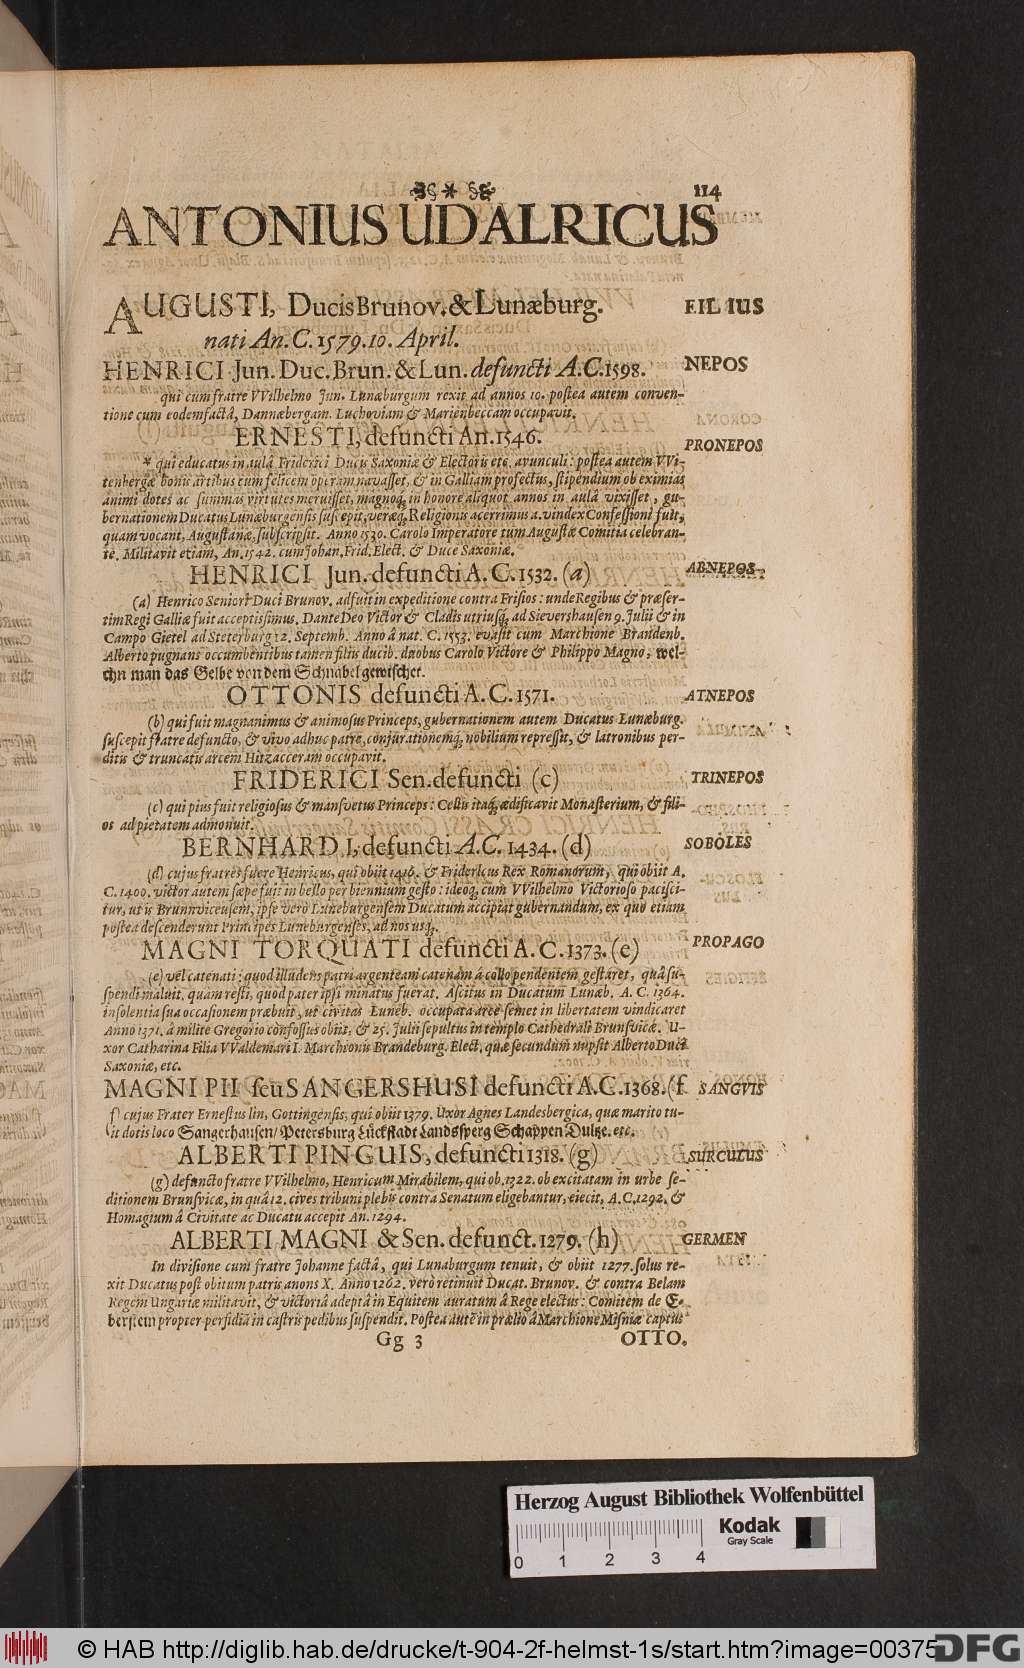 114
ANTONIUS UDALRICUS
AUGUSTI, Ducis Brunov. & Lunæburg. FILIUS
nati An. C. 1579. 10. April.
HENRICI Jun. Duc. Brun. & Lun. defuncti A.C. 1598. NEPOS
qui cum fratre VVilhelmo Jun. Lunæburgum rexit ad annos 10. postea autem conven-
tione cum eodem factâ, Dannæbergam. Luchoviam & Marienbeccam occupavit.
ERNESTI, defuncti An. 1546. PRONEPOS
* qui educatus in aulâ Friderici Ducis Saxoniæ & Electoris etc. avunculi: postea autem VVi-
tenbergæ bonis artibus cum felicem operam navasset, & in Galliam profectus, stipendium ob eximias
animi dotes ac summas virtutes meruisset, magnoq; in honore aliquot annos in aulâ vixisset, gu-
bernationem Ducatus Lunæburgensis suscepit, veræq; Religionis acerrimus a. vindex Confessioni fuit,
quam vocant, Augustanæ, subscripsit. Anno 1530. Carolo Imperatore tum Augustæ Comitia celebran-
te. Militavit etiam, An. 1542. cum Johan. Frid. Elect. & Duce Saxoniæ.
HENRICI Jun. defuncti A. C. 1532. (a) ABNEPOS
(a) Henrico Seniori Duci Brunov. adfuit in expeditione contra Frisios: unde Regibus & præser-
tim Regi Galliæ fuit acceptissimus. Dante Deo Victor & Cladis utriusq; ad Sievershausen 9. Julii & in
Campo Gietel ad Steterburg 12. Septemb. Anno â nat. C. 1553. evasit cum Marchione Brandenb.
Alberto pugnans occumbentibus tamen filiis ducib. duobus Carolo Victore & Philippo Magno, wel-
chn man das Gelbe von dem Schnabel gewischet.
OTTONIS defuncti A. C. 1571. ATNEPOS
(b) qui fuit magnanimus & animosus Princeps, gubernationem autem Ducatus Lunæburg.
suscepit fratre defuncto, & vivo adhuc patre, conjurationemq; nobilium repressit, & latronibus per-
ditis & truncatis arcem Hitzacceram occupavit.
FRIDERICI Sen. defuncti (c) TRINEPOS
(c) qui pius fuit religiosus & mansvetus Princeps: Cellis itaq; ædificavit Monasterium, & fili-
os ad pietatem admonuit.
BERNHARDI, defuncti A.C. 1434. (d) SOBOLES
(d) cujus fratres fuere Henricus, qui obiit 1416. & Fridericus Rex Romanorum, qui obiit A.
C. 1400. victor autem sæpe fuit in bello per biennium gesto: ideoq; cum VVilhelmo Victorioso pacisci-
tur, ut is Brunnvicensem, ipse verò Luneburgensem Ducatum accipiat gubernandum, ex quo etiam
postea descenderunt Principes Luneburgenses, ad nos usq;.
MAGNI TORQUATI defuncti A. C. 1373. (e) PROPAGO
(e) vel catenati: quod illudens patri argenteam catenam â collo pendentem gestaret, quâ su-
spendi maluit, quam resti, quod pater ipsi minatus fuerat. Ascitus in Ducatum Lunæb. A. C. 1364.
insolentia sua occasionem præbuit, ut civitas Luneb. occupata arce semet in libertatem vindicaret
Anno 1371. â milite Gregorio confossus obiit, & 25. Julii sepultus in templo Cathedrali Brunsvicæ. U-
xor Catharina Filia VValdemari I. Marchionis Brandeburg. Elect. quæ secundùm nupsit Alberto Duci
Saxoniæ, etc.
MAGNI PII seu SANGERSHUSI defuncti A.C. 1368. (f. SANGVIS
f) cujus Frater Ernestus in, Gottingensis, qui obiit 1379. Uxor Agnes Landesbergica, quæ marito tu-
lit dotis loco Sangerhausen/ Petersburg Lückstadt Landssperg Schappen Dultze. etc.
ALBERTI PINGUIS, defuncti 1318. (g) SURCULUS
(g) defuncto fratre VVilhelmo, Henricum Mirabilem, qui ob. 1322. ob excitatam in urbe se-
ditionem Brunsvicæ, in quâ 12. cives tribuni plebis contra Senatum eligebantur, eiecit, A. C. 1292. &
Homagium â Civitate ac Ducatu accepit An. 1294.
ALBERTI MAGNI & Sen. defunct. 1279. (h) GERMEN
In divisione cum fratre Johanne factâ, qui Lunaburgum tenuit, & obiit 1277. solus re-
xit Ducatus post obitum patris annos X. Anno 1262. verò retinuit Ducat. Brunov. & contra Belam
Regem Ungariæ militavit, & victoriâ adeptâ in Equitem auratum â Rege electus: Comitem de E-
berstein propter perfidiâ in castris pedibus suspendit. Postea autē in prælio â Marchione Misniæ captus
Gg 3 OTTO.
Herzog August Bibliothek Wolfenbüttel
0 1 2 3 4
Kodak
Gray Scale
© HAB http://diglib.hab.de/drucke/t-904-2f-helmst-1s/start.htm?image=00375
DFG